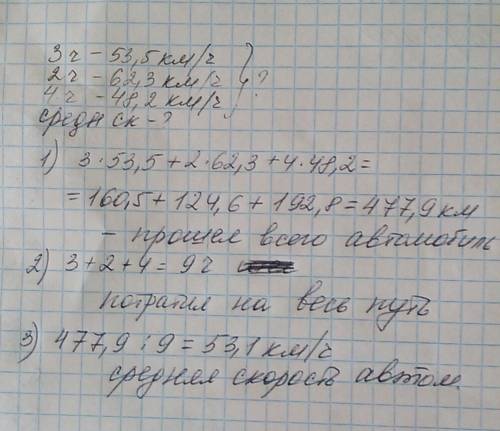 3 ч - 53,5 км/ч
2 ч - 62,3 км/ч } ?
4 ч - 48,2 км/ч
средн ск - ?
1) 3·53,5+2·62,3+4·48,2=
=160,5+124,6+192,8=477,9 км
- прошел всего автомобиль
2) 3+2+4=9 ч
потратил на весь путь
3) 477,9:9=53,1 км/ч
средняя скорость автом.